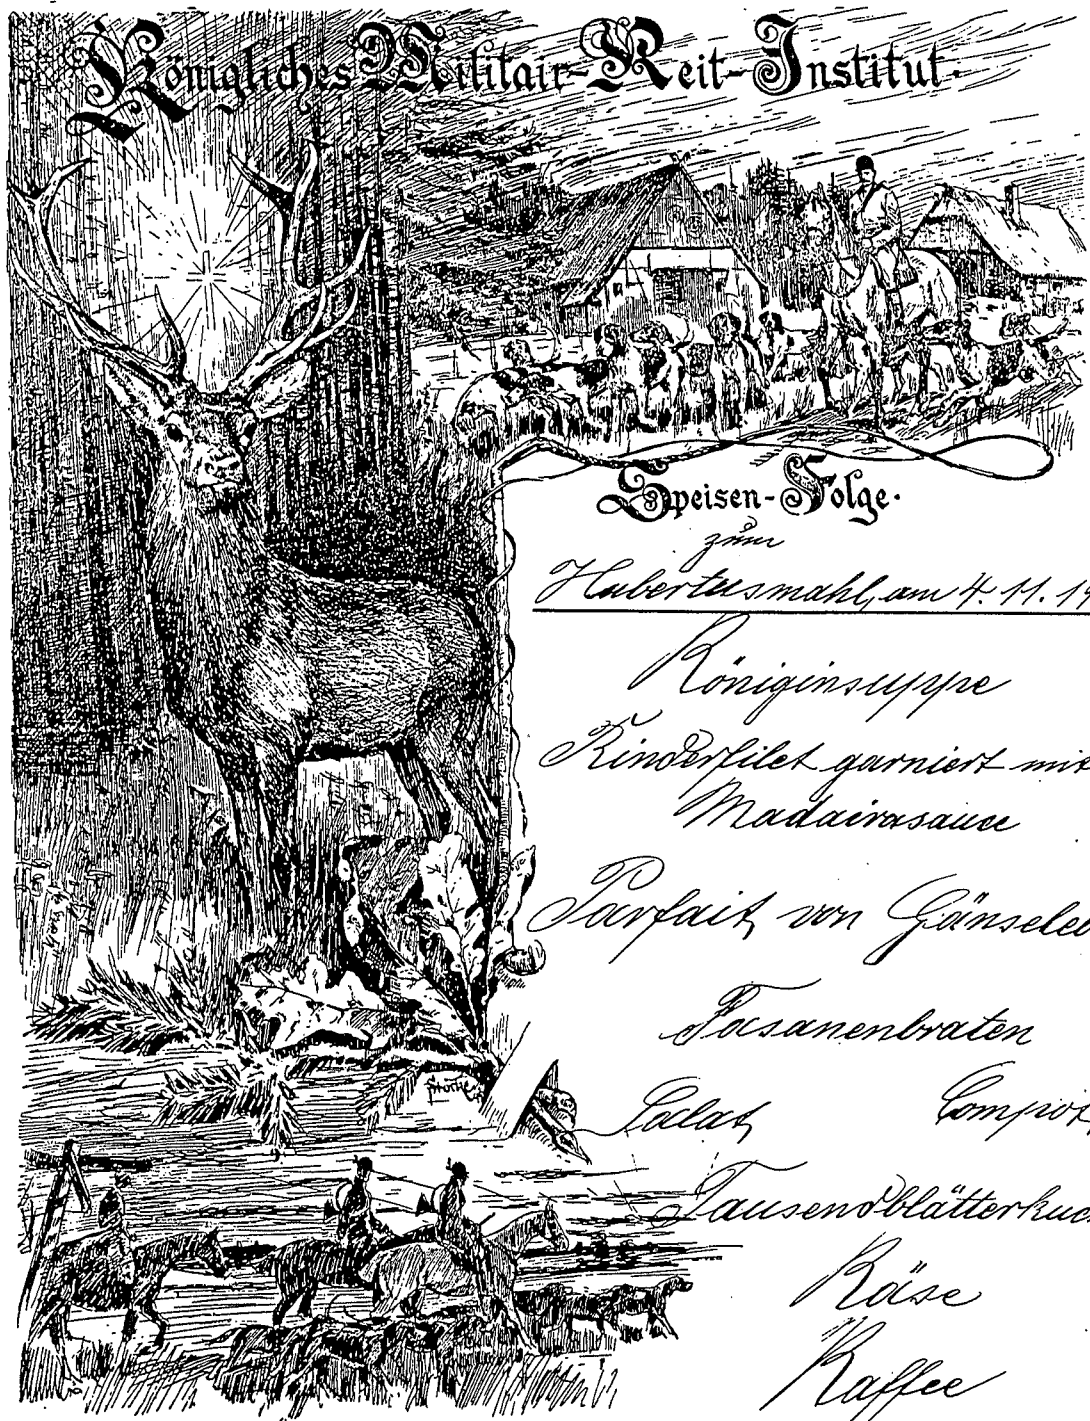 Königliches Militair-Reit-Institut.
Speisen-Folge.
zum
Hubertusmahl, am 4. 11. 19
Königinsuppe
Rinderfilet garniert mit
Madairasauce
Parfait von Gänseleb
Fasanenbraten
Salat, Compot,
Tausendblätterkuc
Käse
Kaffee